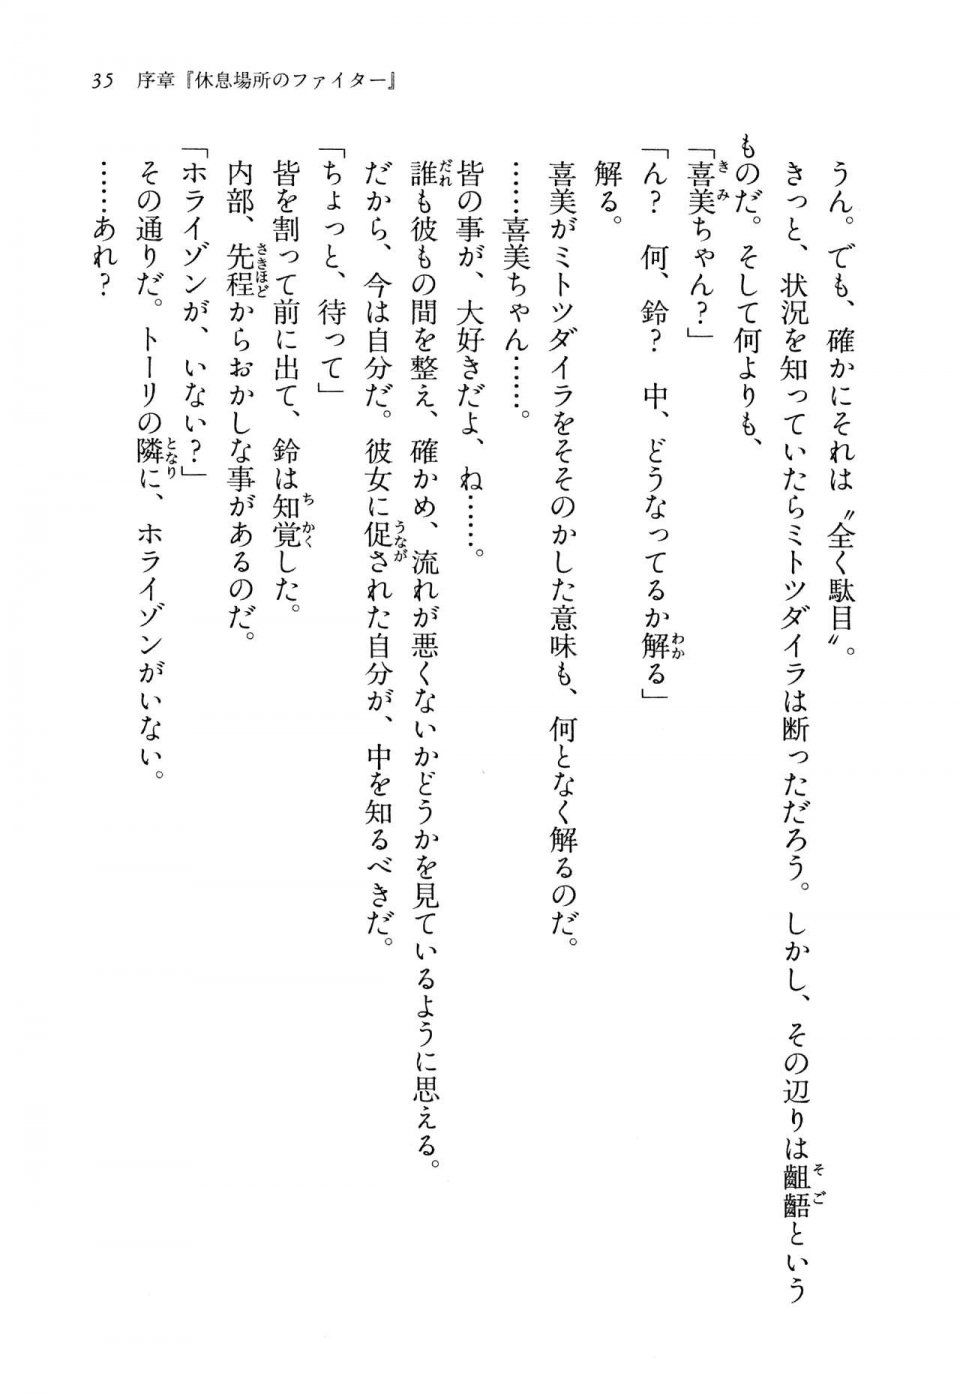 35　序章『休息場所のファイター』
　うん。でも、確かにそれは〝全く駄目〟。
　きっと、状況を知っていたらミトツダイラは断っただろう。しかし、その辺りは齟齬という
ものだ。そして何よりも、
「喜美ちゃん？」
「ん？　何、鈴？　中、どうなってるか解る」
　解る。
　喜美がミトツダイラをそそのかした意味も、何となく解るのだ。
　……喜美ちゃん……。
　皆の事が、大好きだよ、ね……。
　誰も彼もの間を整え、確かめ、流れが悪くないかどうかを見ているように思える。
　だから、今は自分だ。彼女に促された自分が、中を知るべきだ。
「ちょっと、待って」
　皆を割って前に出て、鈴は知覚した。
　内部、先程からおかしな事があるのだ。
「ホライゾンが、いない？」
　その通りだ。トーリの隣に、ホライゾンがいない。
　……あれ？